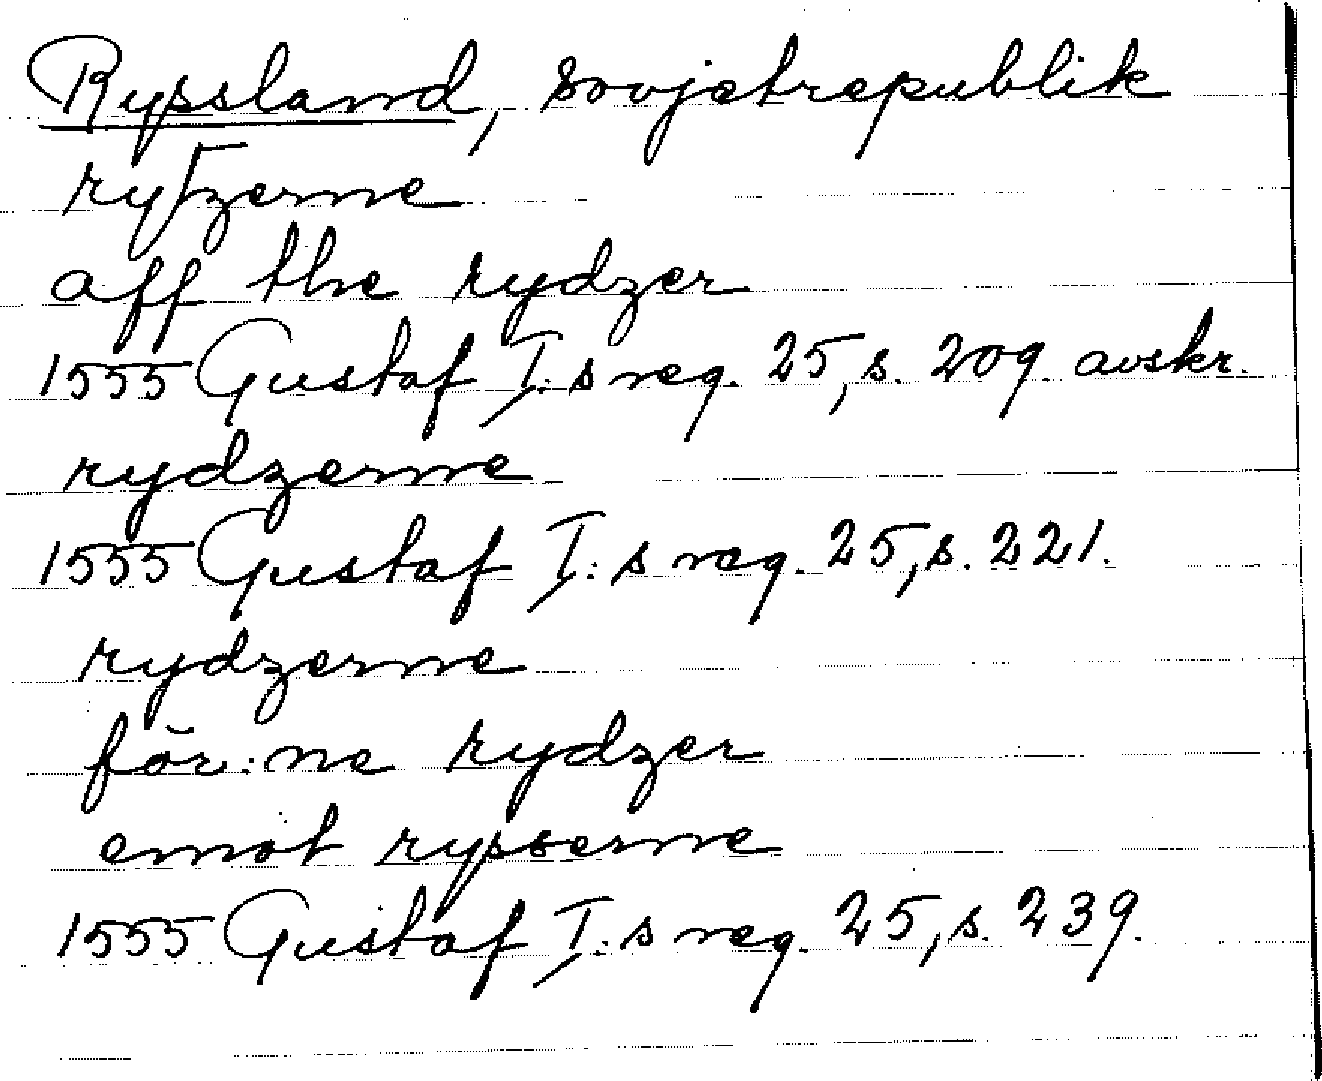 Ryssland, Sovjetrepublik
ryſzerne
aff the rydzer
1555 Gustaf I:s reg. 25, s. 209. avskr.
rydzerne
1555 Gustaf I:s reg. 25, s. 221.
rydzerne
för:ne rydzer
emot rysserne
1555 Gustaf I:s reg. 25, s. 239.